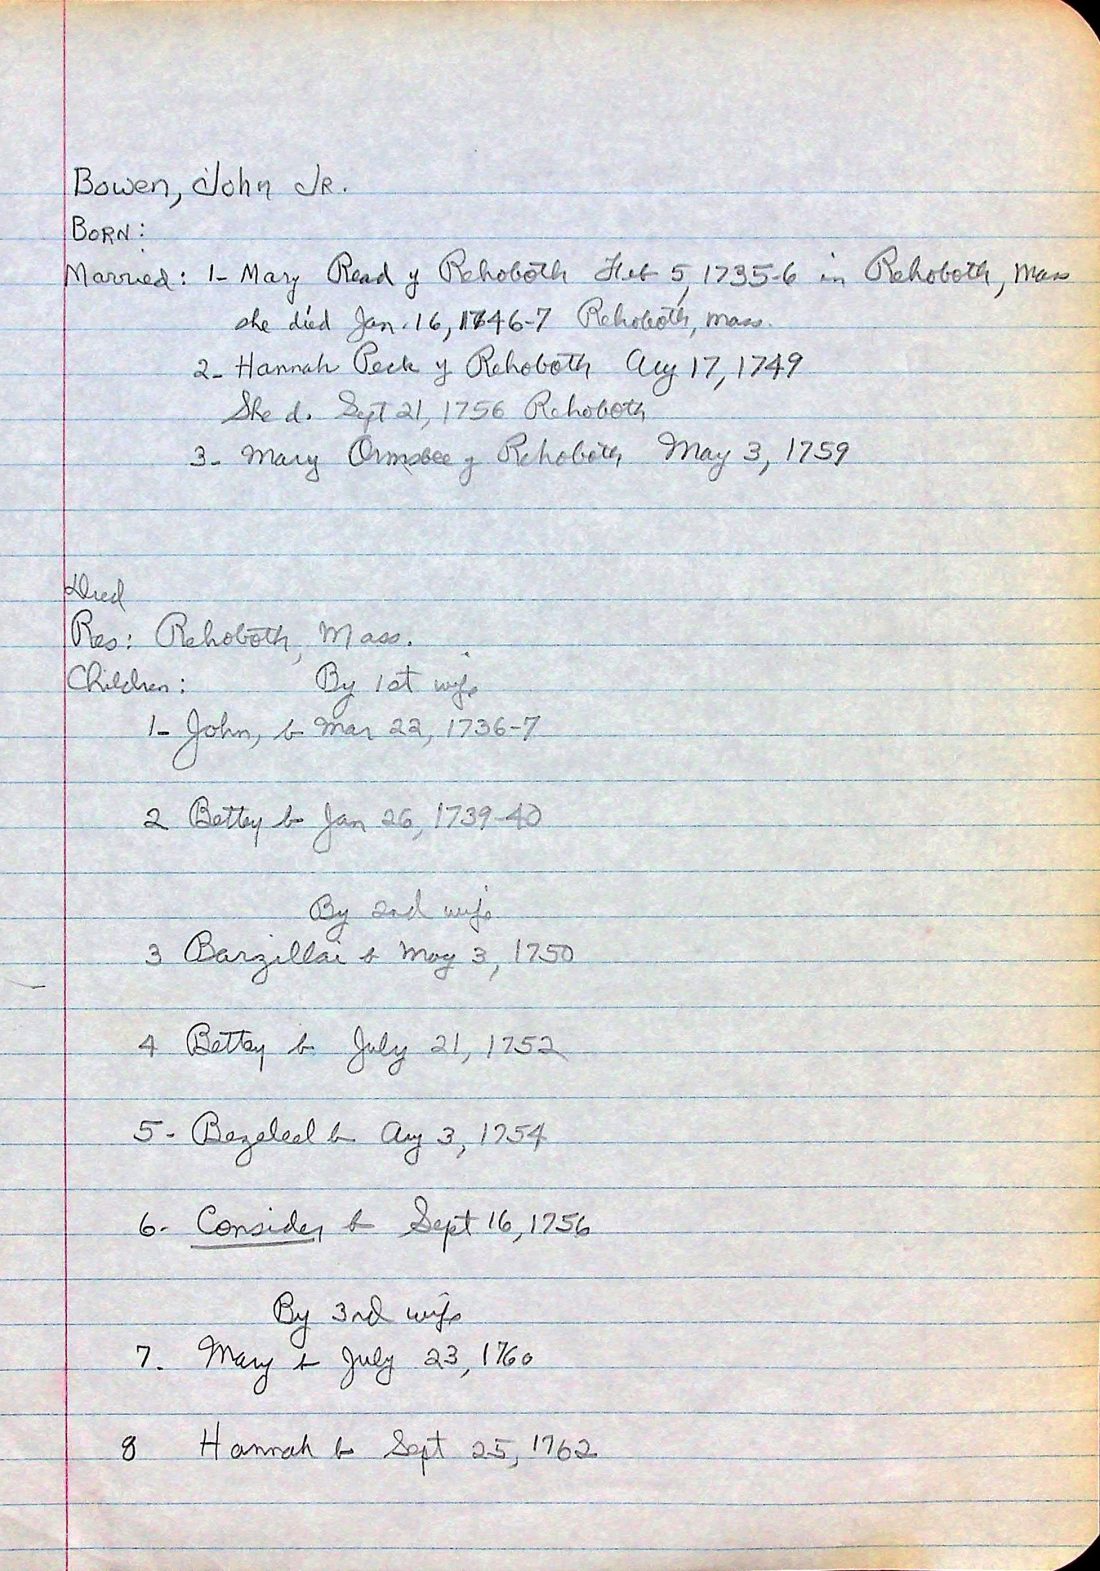 Bowen, John JR.
BORN:
Married: 1- Mary Read of Rehoboth Feb 5, 1735-6 in Rehoboth, Mass
she died Jan. 16, 1746-7 Rehoboth, Mass.
2- Hannah Peck of Rehoboth Aug 17, 1749
She d. Sept 21, 1756 Rehoboth
3- Mary Ormsbee of Rehoboth May 3, 1759
Died
Res: Rehoboth, Mass.
Children: By 1st wife
1- John, b Mar 22, 1736-7
2 Bettey b Jan 26, 1739-40
By 2nd wife
3 Barzillai b May 3, 1750
4 Bettey b July 21, 1752
5- Bezeleel b Aug 3, 1754
6- Consider b Sept 16, 1756
By 3rd wife
7. Mary b July 23, 1760
8 Hannah b Sept 25, 1762